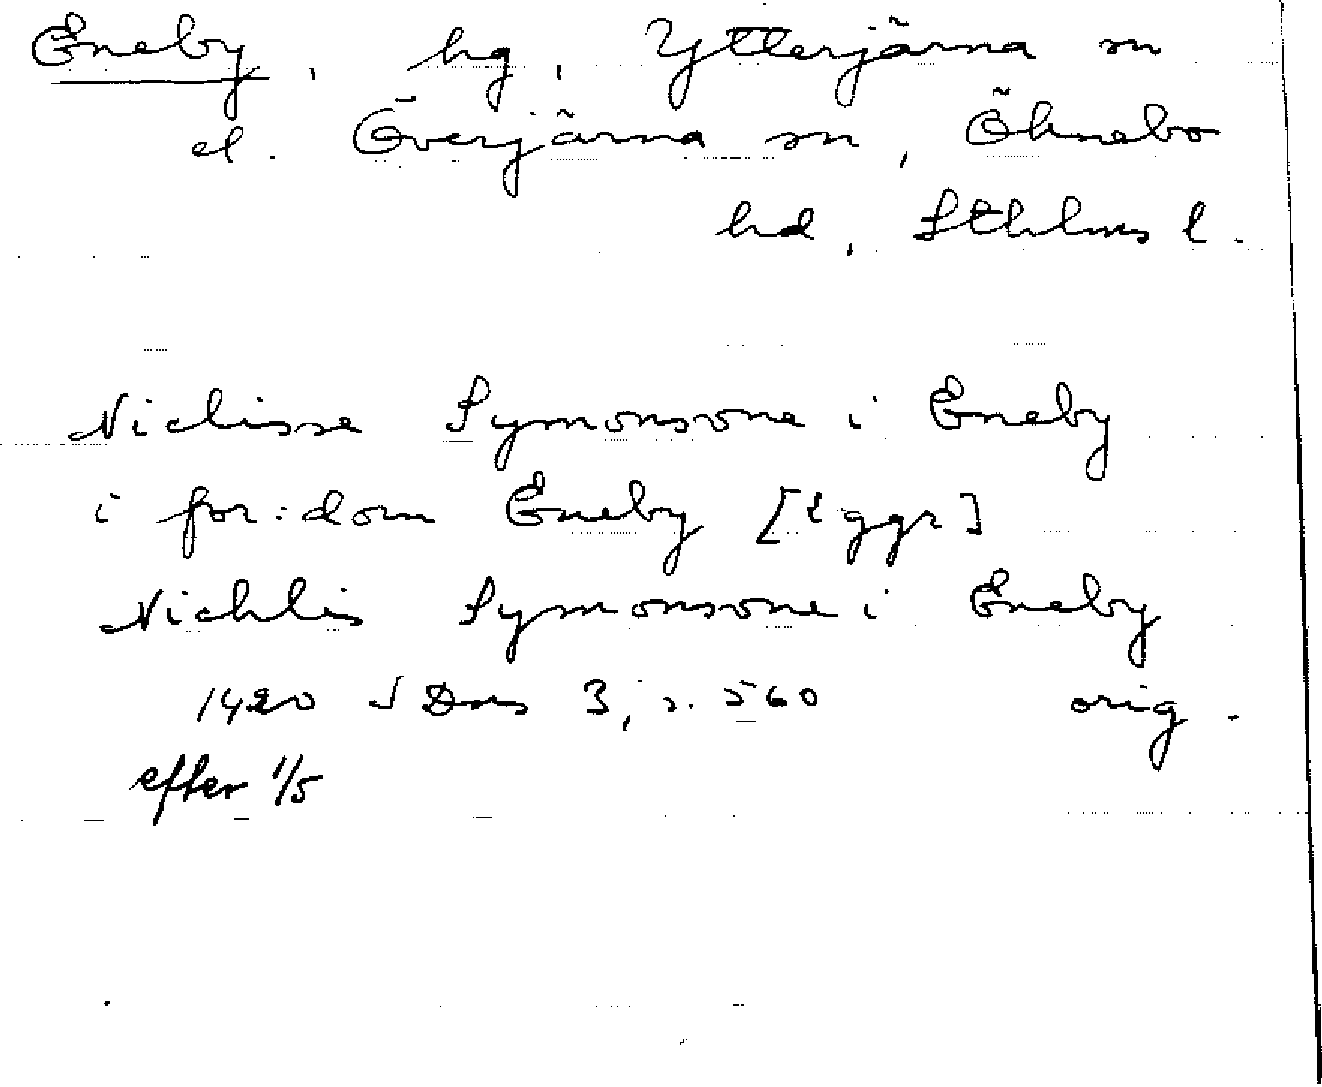 Eneby, hg, Ytterjärna sn
el. Överjärna sn, Öknebo
hd, Sthlms l.
Niclisse Symonsone i Eneby
i for:dom Eneby [2 ggr]
Nichlis Symonsone i Eneby
1420 √ Dns 3, s. 560 orig.
efter 1/5